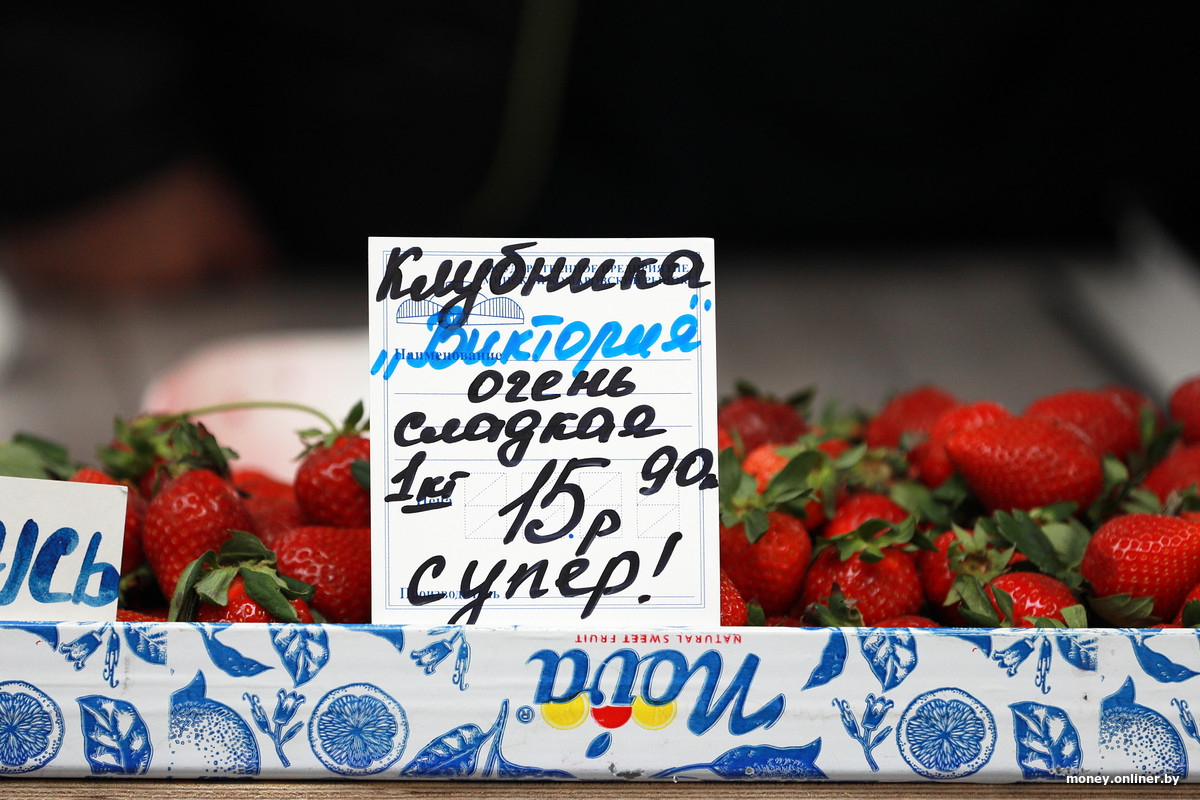 Клубника
„Виктория"
очень
сладкая
1кг 15р 90к
супер!
Наименование
Цена
усь
NATURAL SWEET FRUIT
Nova®
money.onliner.by